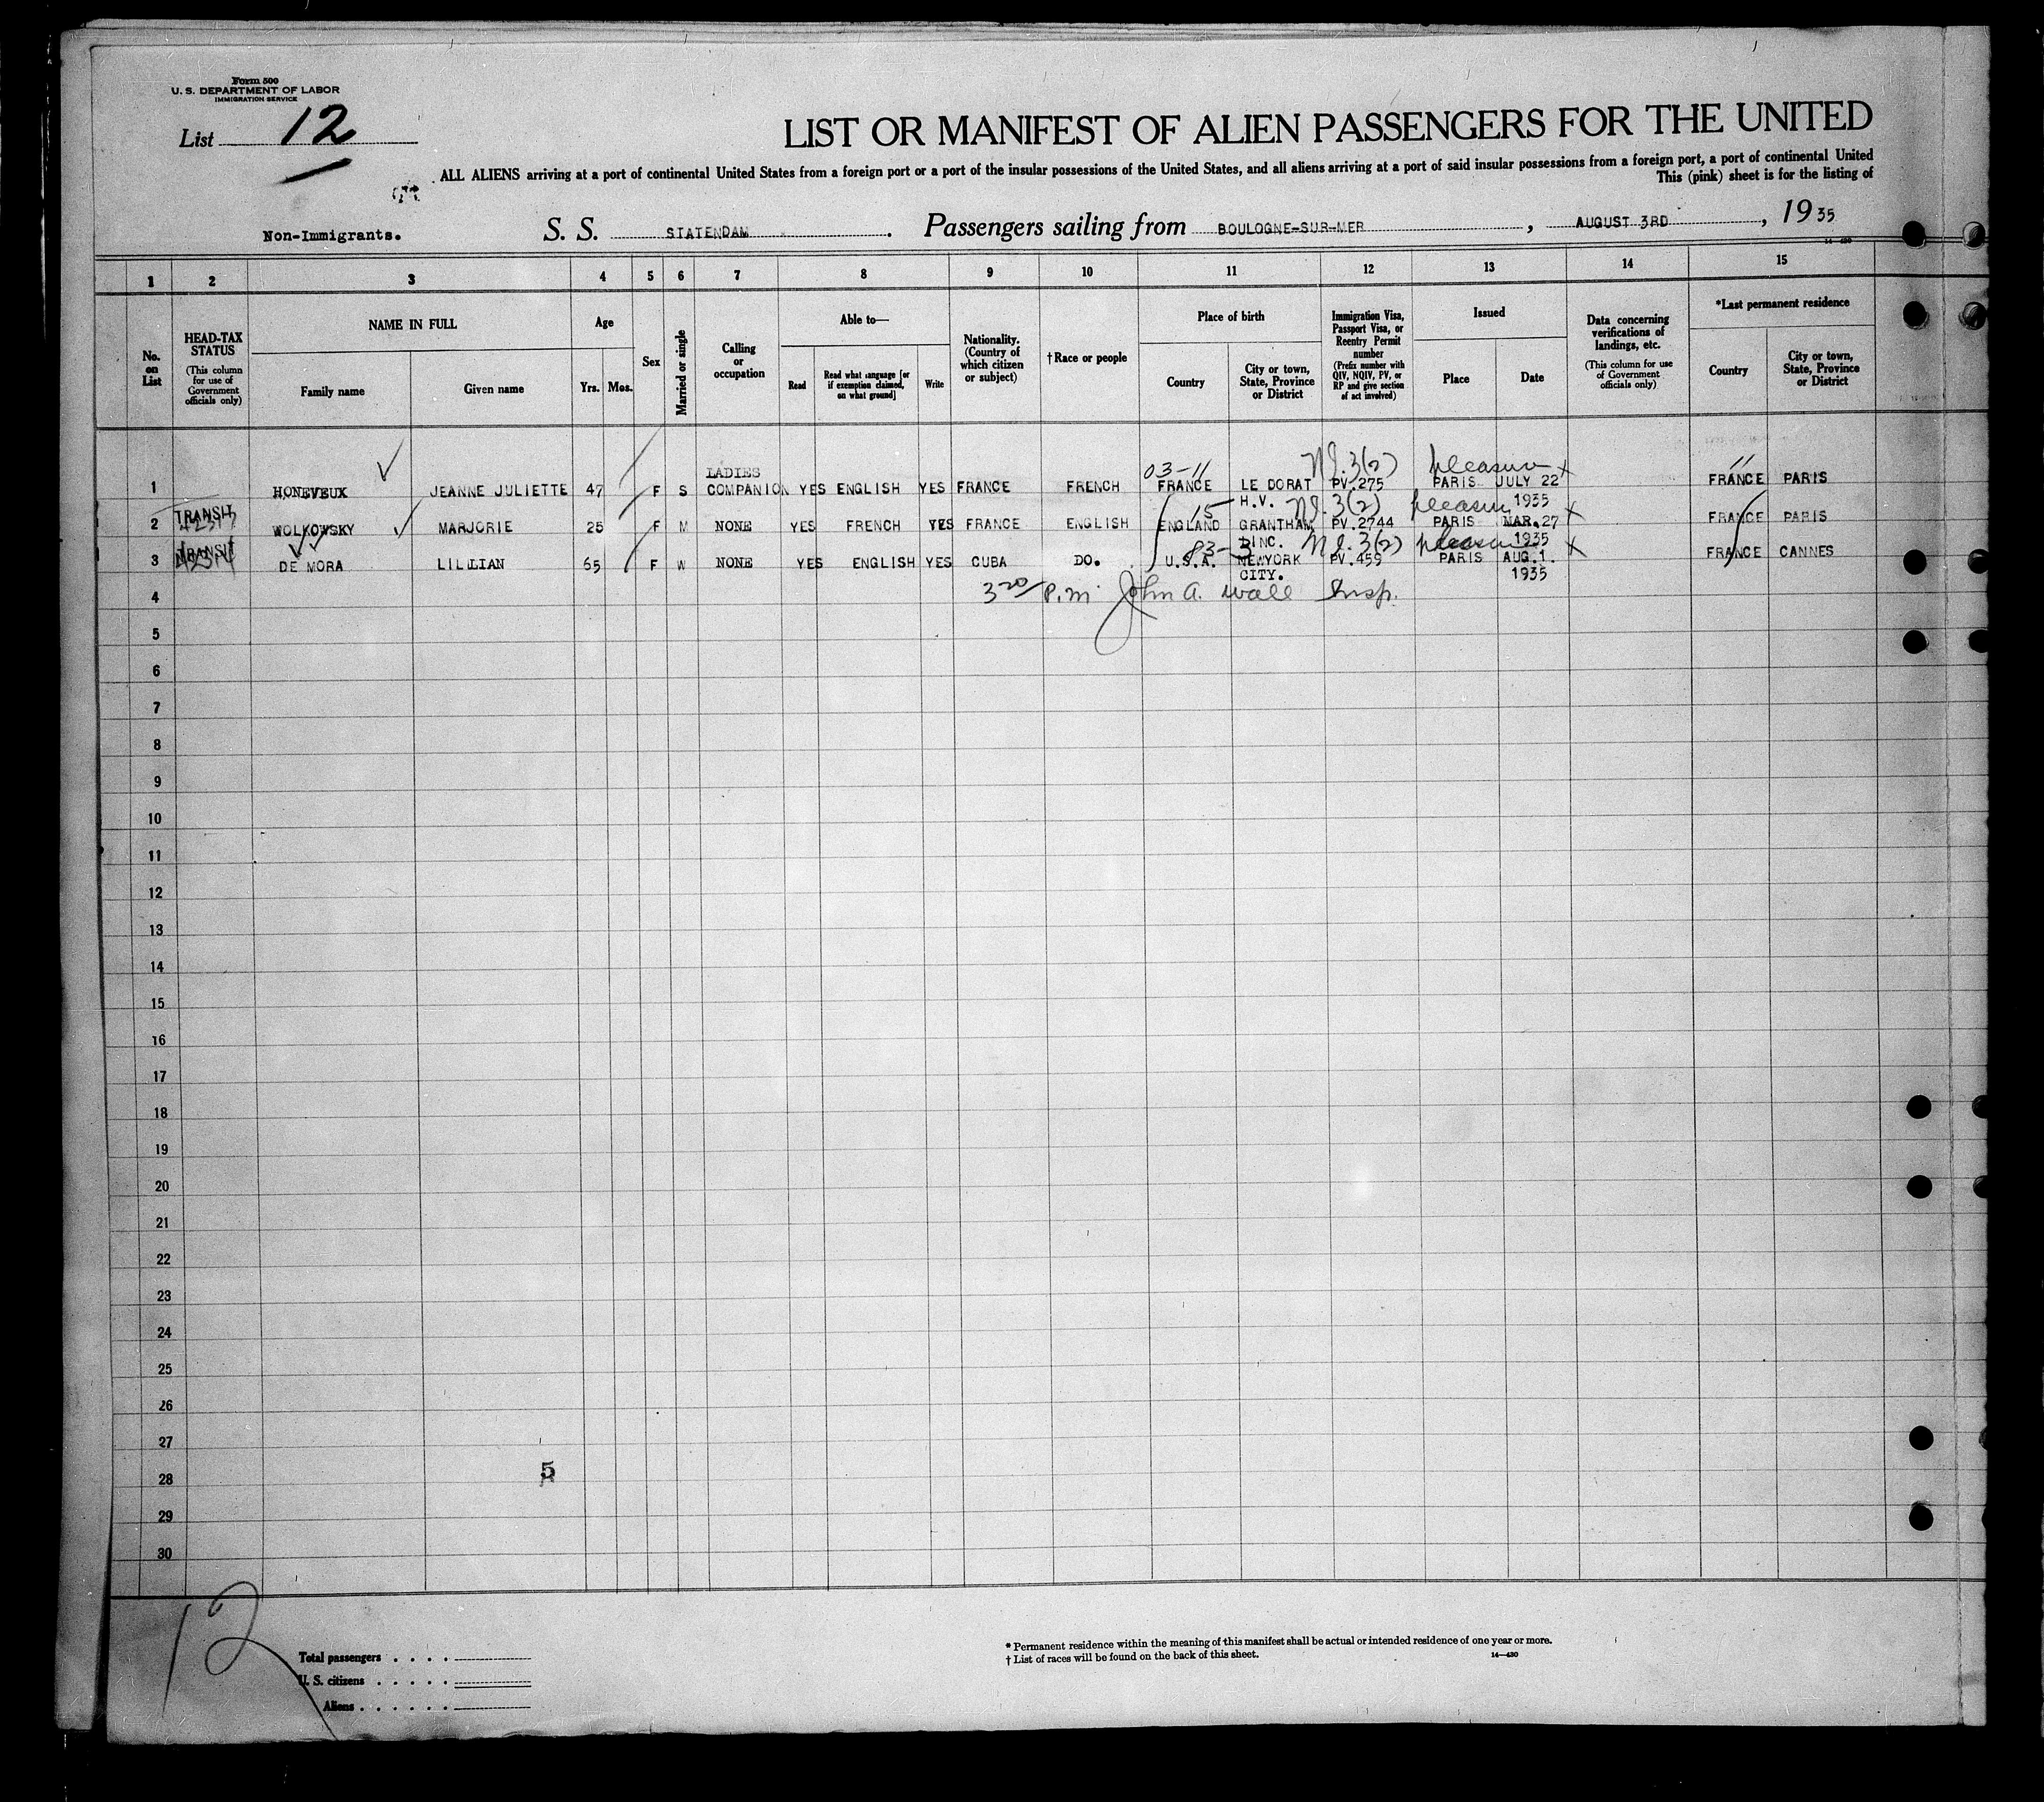 Form 500
U. S. DEPARTMENT OF LABOR
IMMIGRATION SERVICE
List 12
LIST OR MANIFEST OF ALIEN PASSENGERS FOR THE UNITED
ALL ALIENS arriving at a port of continental United States from a foreign port or a port of the insular possessions of the United States, and all aliens arriving at a port of said insular possessions from a foreign port, a port of continental United
This (pink) sheet is for the listing of
Non-Immigrants. S. S. STATENDAM . Passengers sailing from BOULOGNE-SUR-MER , AUGUST 3RD , 1935
14—430
1 2 3 4 5 6 7 8 9 10 11 12 13 14 15
No. on List
HEAD-TAX STATUS
(This column for use of Government officials only)
NAME IN FULL
Family name
Given name
Age
Yrs. Mos.
Sex
Married or single
Calling or occupation
Able to—
Read
Read what language [or if exemption claimed, on what ground]
Write
Nationality. (Country of which citizen or subject)
†Race or people
Place of birth
Country
City or town, State, Province or District
Immigration Visa, Passport Visa, or Reentry Permit number
(Prefix number with QIV, NQIV, PV, or RP and give section of act involved)
Issued
Place
Date
Data concerning verifications of landings, etc.
(This column for use of Government officials only)
*Last permanent residence
Country
City or town, State, Province or District
LADIES 03-11 3(2) pleasure 11
1 HONEVEUX JEANNE JULIETTE 47 F S COMPANION YES ENGLISH YES FRANCE FRENCH FRANCE LE DORAT PV.275 PARIS JULY 22 FRANCE PARIS
TRANSIT 15 H.V. 3(2) pleasure 1935
2 WOLKOWSKY MARJORIE 25 F M NONE YES FRENCH YES FRANCE ENGLISH ENGLAND GRANTHAM PV.2744 PARIS MAR.27 FRANCE PARIS
TRANSIT 83-3 LINC. 3(2) pleasure 1935
3 DE MORA LILLIAN 65 F W NONE YES ENGLISH YES CUBA DO. U.S.A. NEWYORK PV.459 PARIS AUG.1. FRANCE CANNES
CITY. 1935
4 3 20/ P.m John A. Wall Insp.
5
6
7
8
9
10
11
12
13
14
15
16
17
18
19
20
21
22
23
24
25
26
27
28 5
29
30
12
Total passengers . . . .
U. S. citizens . . . . .
Aliens . . . . . .
* Permanent residence within the meaning of this manifest shall be actual or intended residence of one year or more.
† List of races will be found on the back of this sheet. 14—430